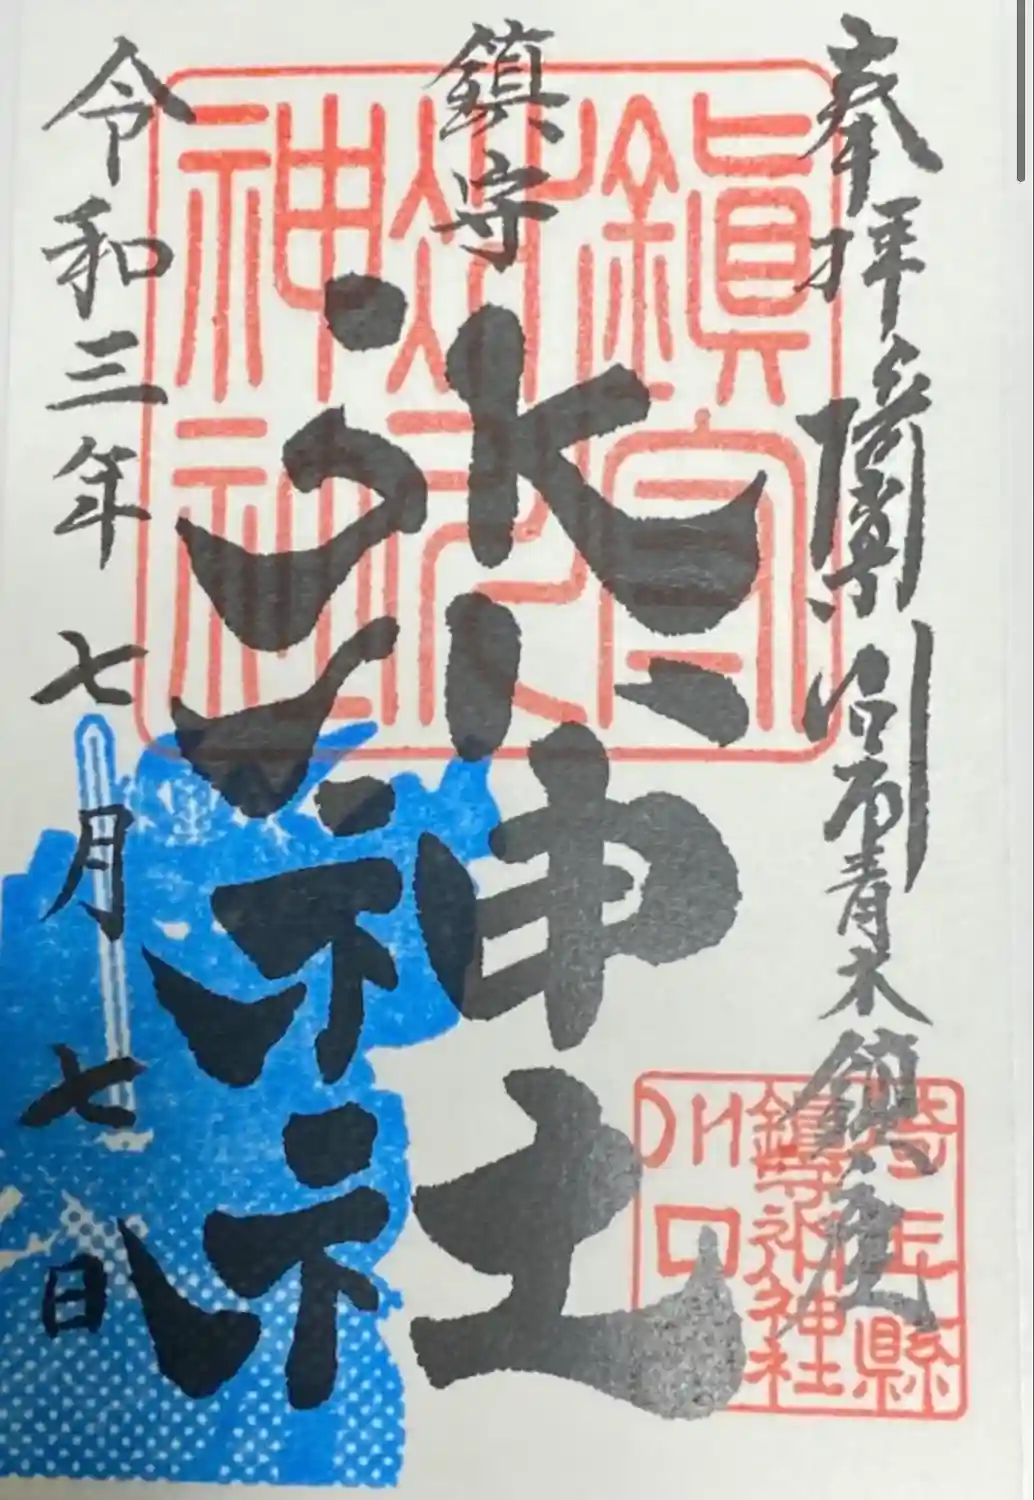 奉拝 川口市青木鎮座
鎮守
氷川神社
令和三年七月七日
鎮守
氷川
神社
埼玉縣
鎮守氷川神社
川口